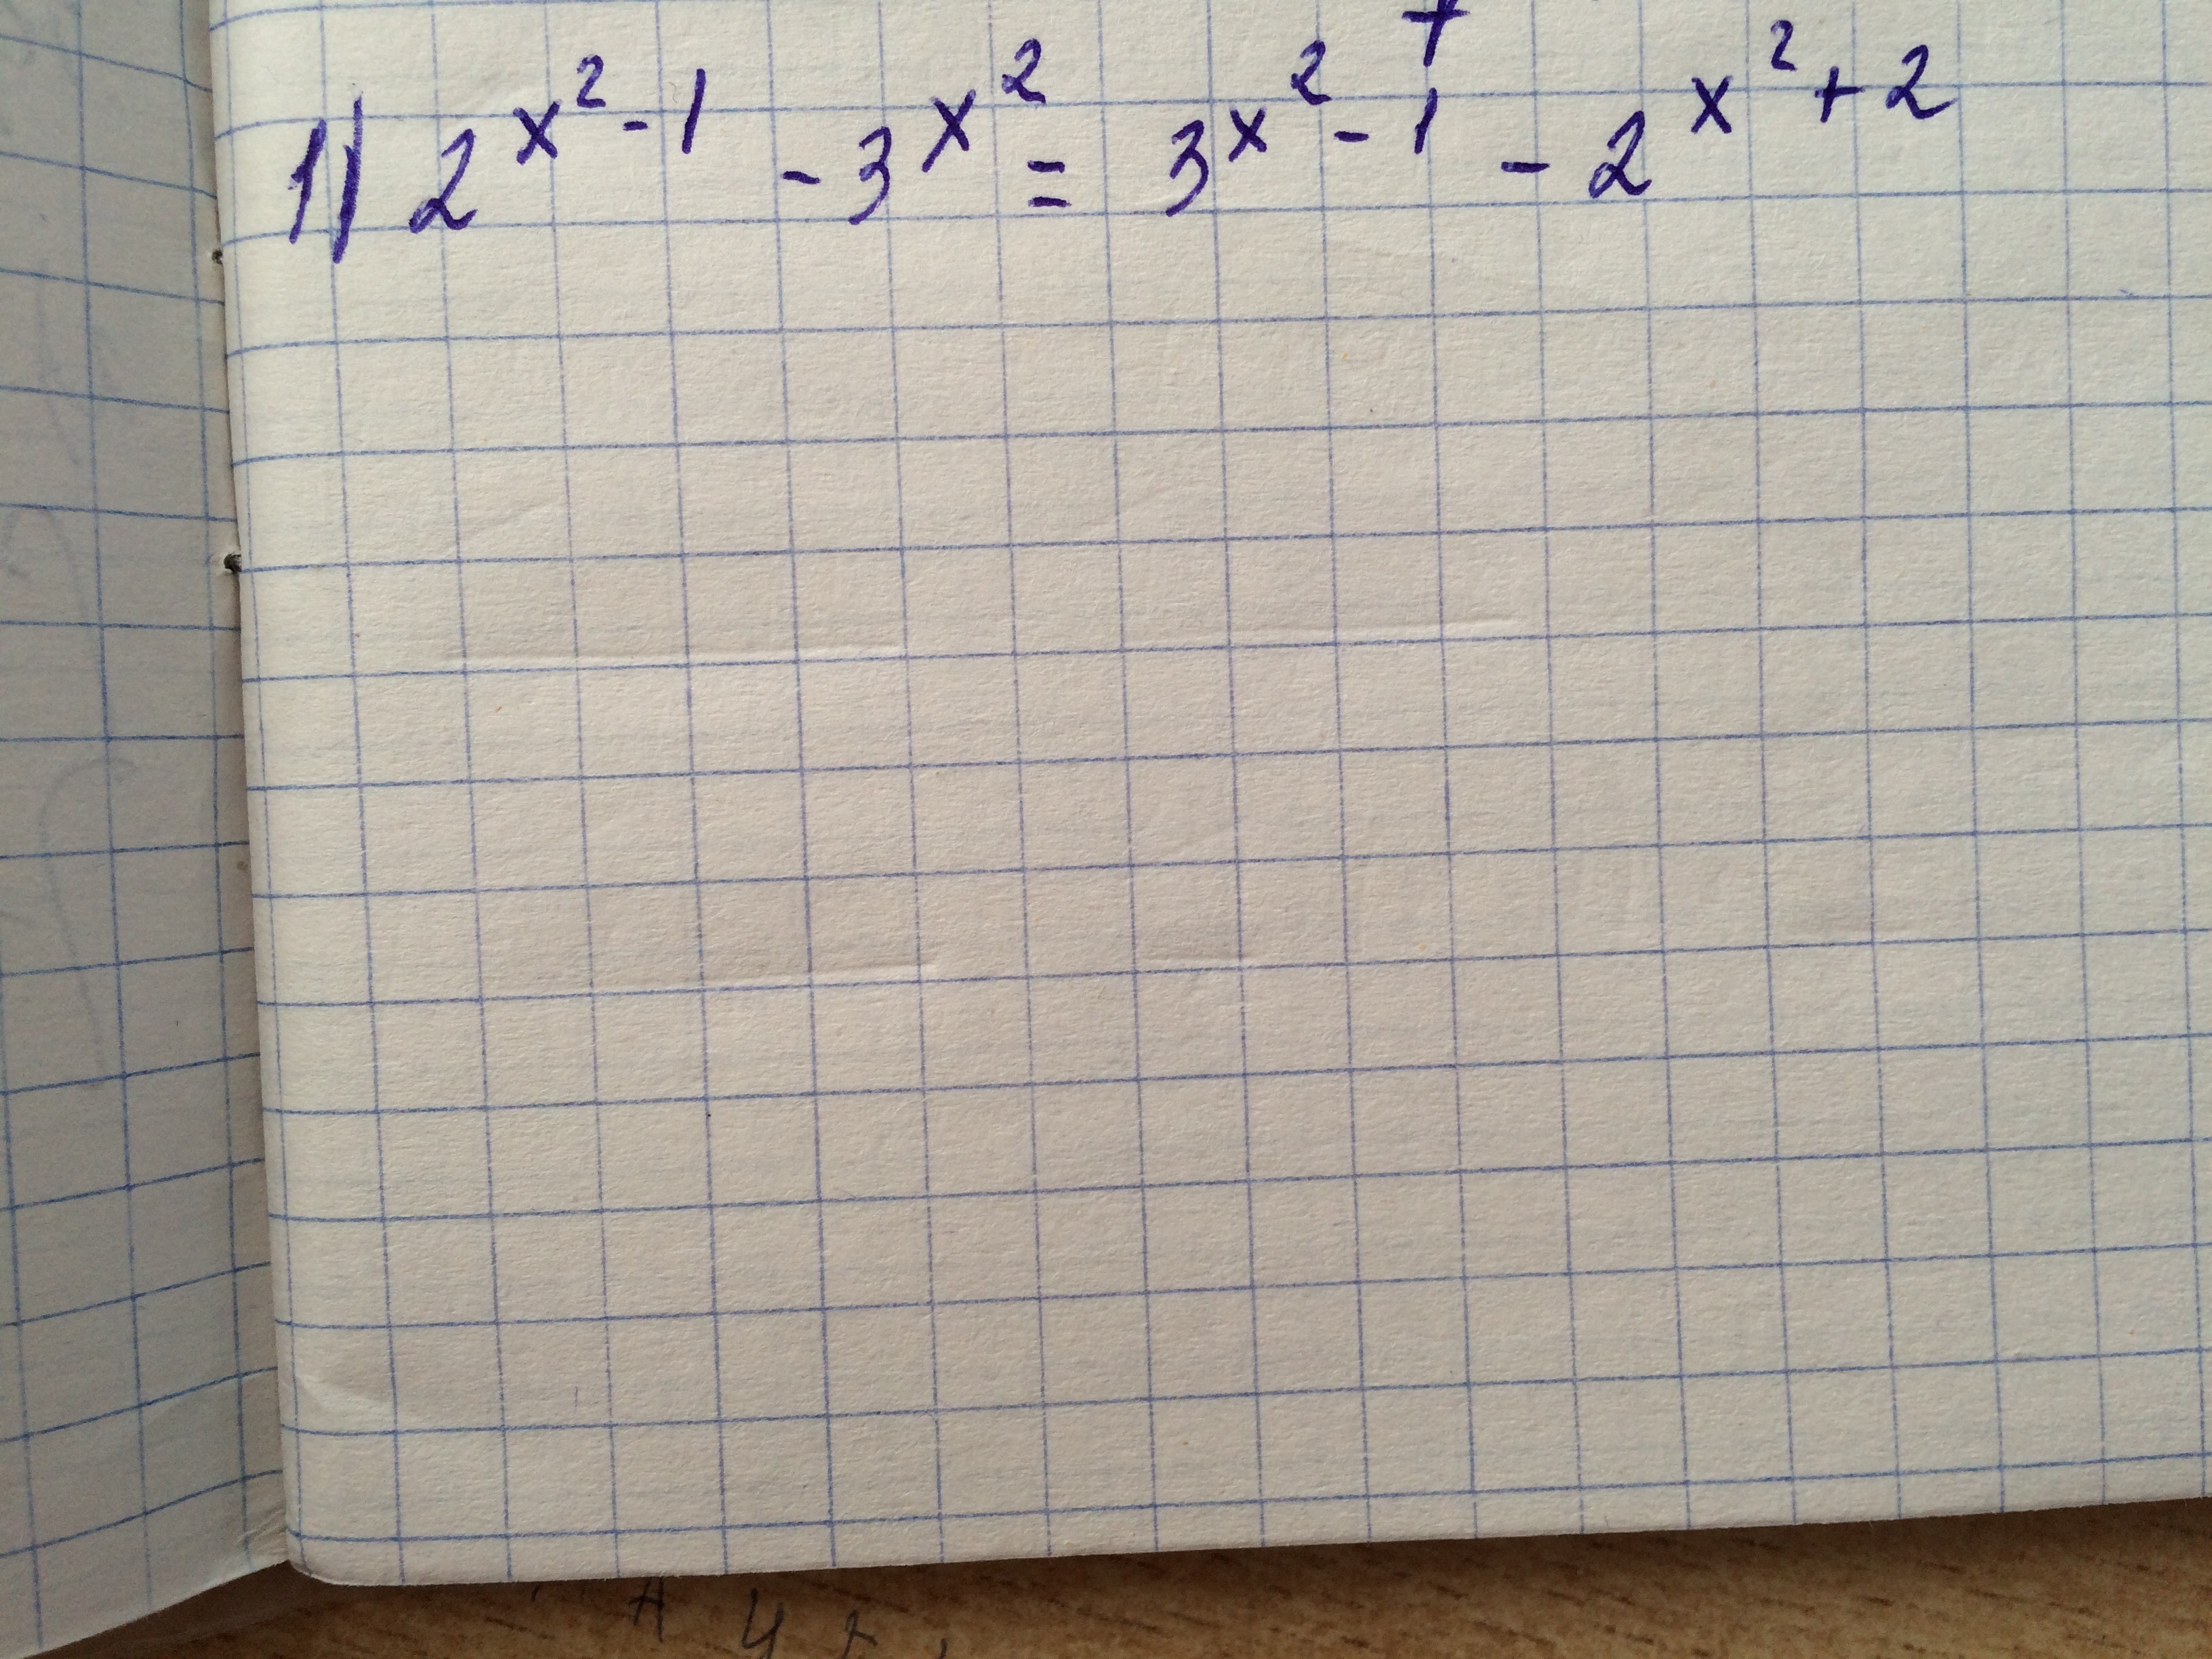 1) 2^{x^2-1} - 3^{x^2} = 3^{x^2-1} - 2^{x^2+2}